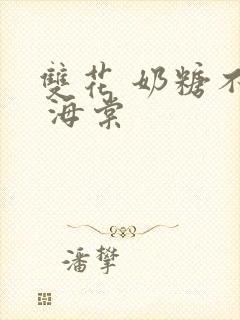 雙花 奶糖不
海棠
潘攀